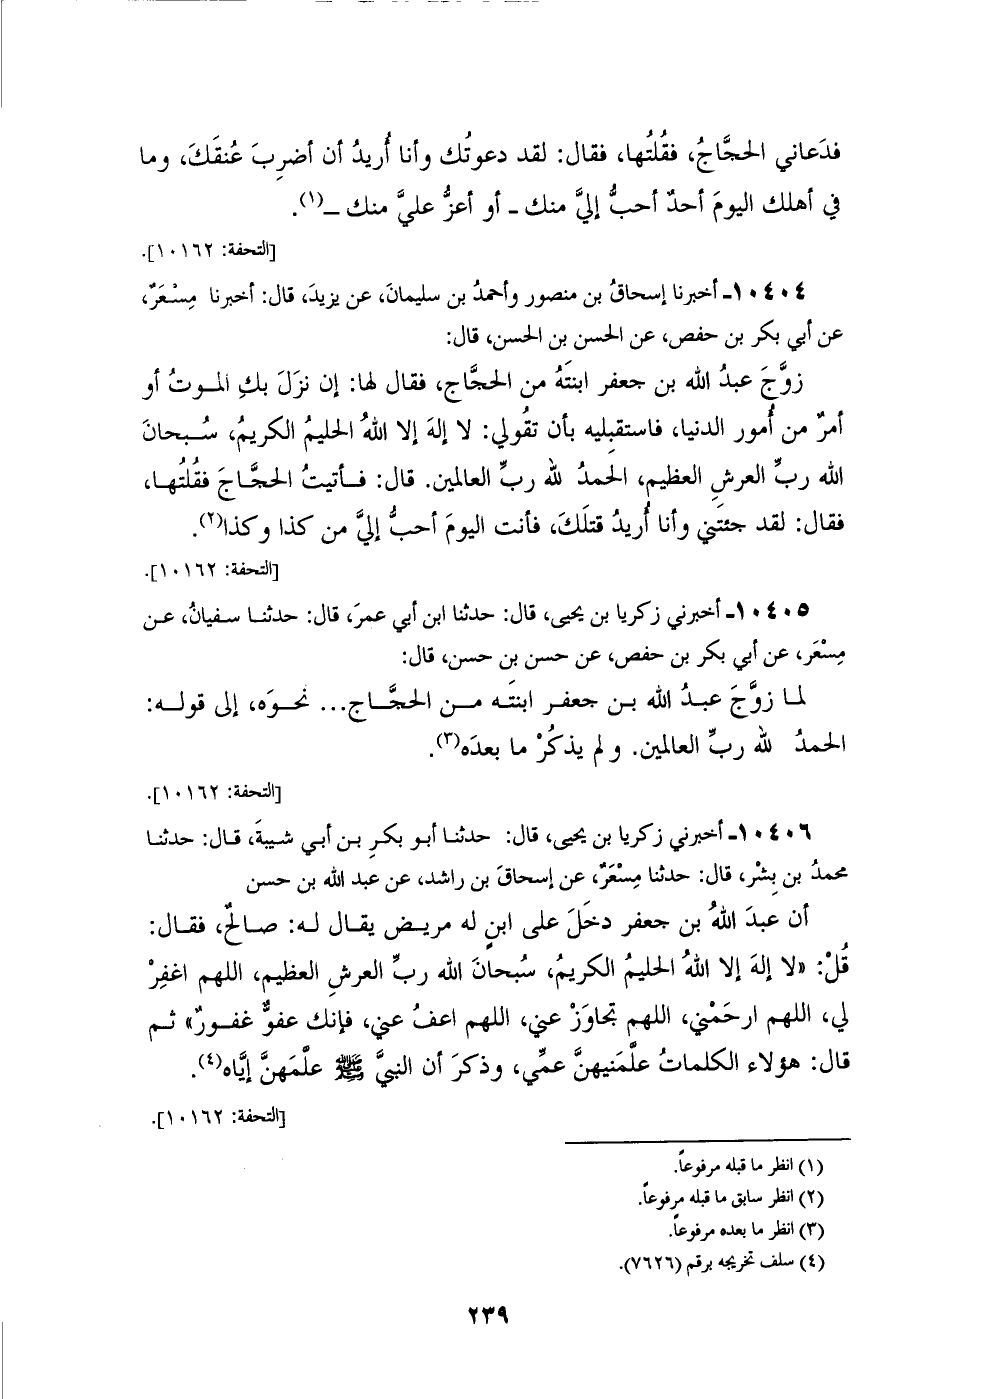 فدَعاني الحجَّاجُ، فقُلتُها، فقال: لقد دعوتُك وأنا أُريدُ أن أضرِبَ عُنقَكَ، وما
في أهلك اليومَ أحدٌ أحبُّ إليَّ منك ـ أو أعزُّ عليَّ منك ـ(١).
[التحفة: ١٠١٦٢].
١٠٤٠٤ـ أخبرنا إسحاقُ بن منصور وأحمدُ بن سليمانَ، عن يزيدَ، قال: أخبرنا مِسْعَرٌ،
عن أبي بكر بن حفص، عن الحسن بن الحسن، قال:
زوَّجَ عبدُ الله بن جعفر ابنتَهُ من الحجَّاج، فقال لها: إن نزَلَ بكِ الموتُ أو
أمرٌ من أُمور الدنيا، فاستقبِليه بأن تقُولي: لا إلهَ إلا اللهُ الحليمُ الكريمُ، سُبحانَ
الله ربِّ العرشِ العظيم، الحمدُ لله ربِّ العالمين. قال: فأتيتُ الحجَّاجَ فقُلتُها،
فقال: لقد جئتَني وأنا أُريدُ قتلَكَ، فأنت اليومَ أحبُّ إليَّ من كذا وكذا(٢).
[التحفة: ١٠١٦٢].
١٠٤٠٥ـ أخبرني زكريا بن يحيى، قال: حدثنا ابن أبي عمرَ، قال: حدثنا سفيانُ، عن
مِسْعَر، عن أبي بكر بن حفص، عن حسن بن حسن، قال:
لما زوَّجَ عبدُ الله بن جعفر ابنتَه من الحجَّاج... نحوَه، إلى قوله:
الحمدُ لله ربِّ العالمين. ولم يذكُرْ ما بعدَه(٣).
[التحفة: ١٠١٦٢].
١٠٤٠٦ـ أخبرني زكريا بن يحيى، قال: حدثنا أبو بكرِ بن أبي شيبةَ، قال: حدثنا
محمدُ بن بِشْر، قال: حدثنا مِسْعَرٌ، عن إسحاقَ بن راشد، عن عبد الله بن حسن
أن عبدَ اللهُ بن جعفر دخَلَ على ابنٍ له مريض يقال له: صالحٌ، فقال:
قُلْ: «لا إلهَ إلا اللهُ الحليمُ الكريمُ، سُبحانَ الله ربِّ العرشِ العظيم، اللهم اغفِرْ
لي، اللهم ارحَمْني، اللهم تجاوَزْ عني، اللهم اعفُ عني، فإنك عفوٌّ غفورٌ» ثم
قال: هؤلاء الكلماتُ علَّمَنيهنَّ عمِّي، وذكرَ أن النبيَّ ﷺ علَّمَهنَّ إيَّاه(٤).
[التحفة: ١٠١٦٢].
(١) انظر ما قبله مرفوعاً.
(٢) انظر سابق ما قبله مرفوعاً.
(٣) انظر ما بعده مرفوعاً.
(٤) سلف تخريجه برقم (٧٦٢٦).
٢٣٩